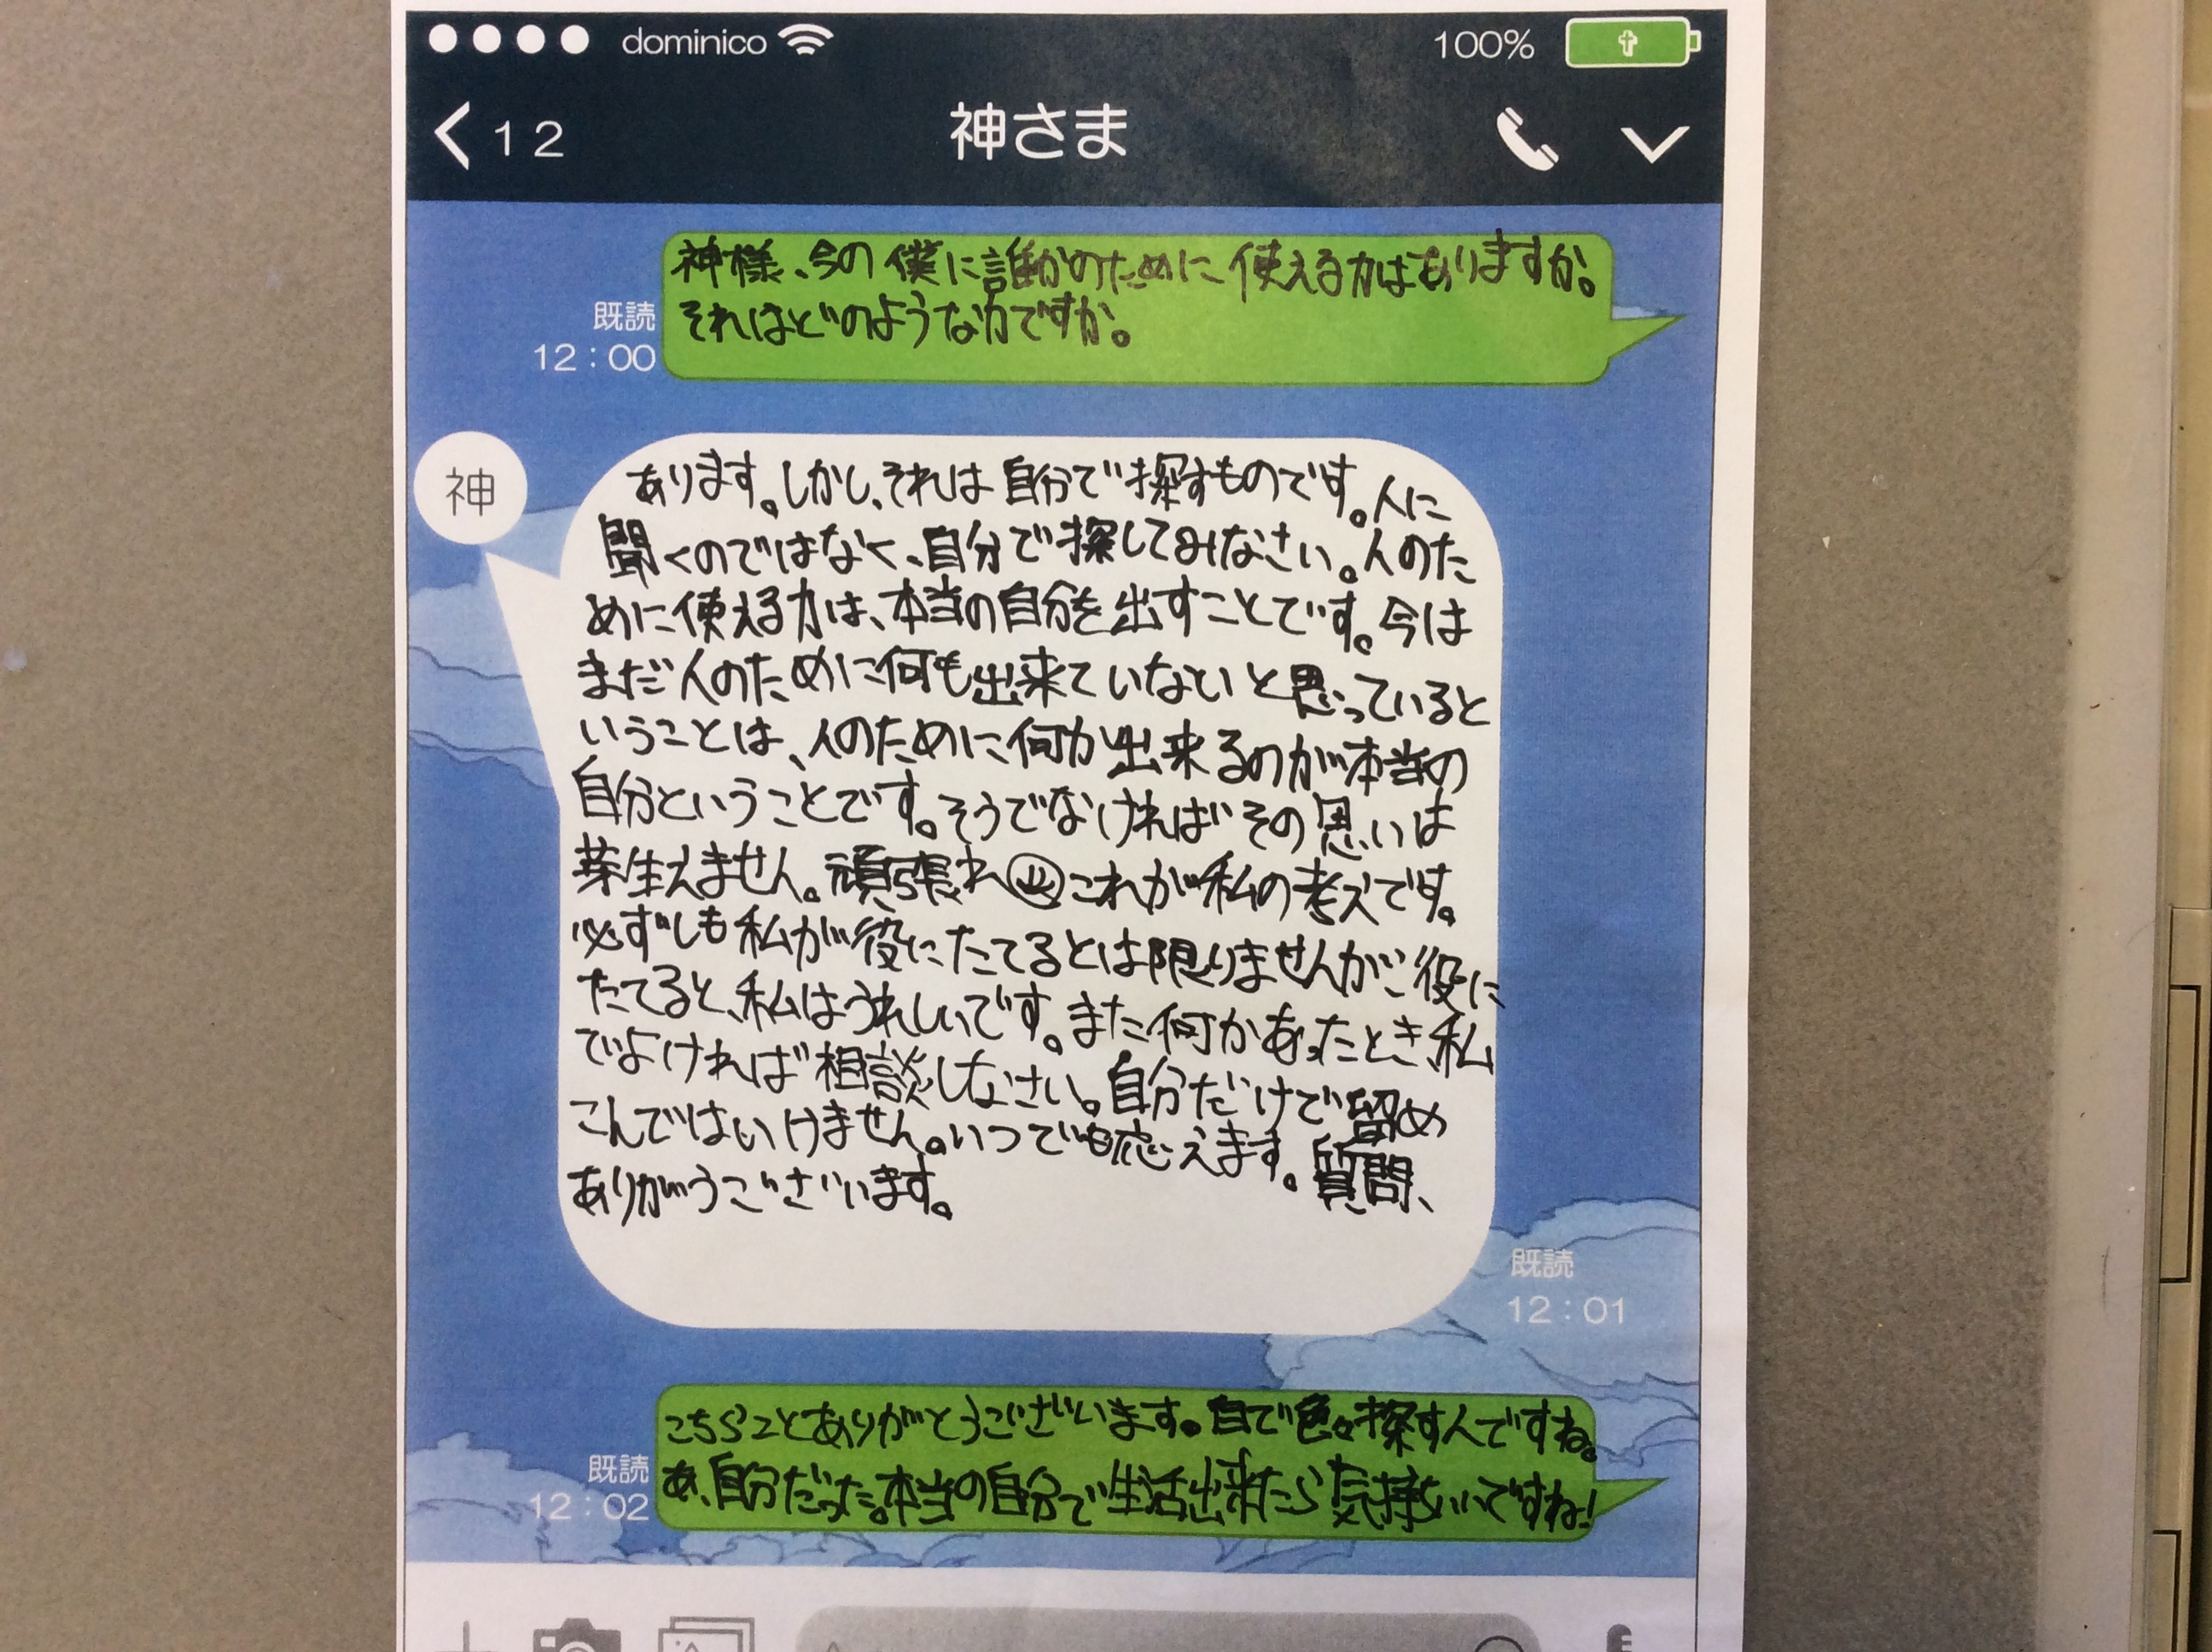 dominico 100%
12 神さま
神様、今の僕に誰かのために使える力はありますか。
それはどのような力ですか。
既読
12:00
神
あります。しかし、それは自分で探すものです。人に
聞くのではなく、自分で探してみなさい。人のた
めに使える力は、本当の自分を出すことです。今は
まだ人のために何も出来ていないと思っていると
いうことは、人のために何か出来るのが本当の
自分ということです。そうでなければその思いは
芽生えません。頑張れ これが私の考えです。
必ずしも私が役にたてるとは限りませんがご役に
たてると、私はうれしいです。また何かあったとき、私
でよければ相談しなさい。自分だけで留め
こんではいけません。いつでも応えます。質問、
ありがうございます。
既読
12:01
こちらことありがとうございます。自で色々探す人ですね。
あ、自分だった。本当の自分で生活出来たら気持ちいいですね!
既読
12:02